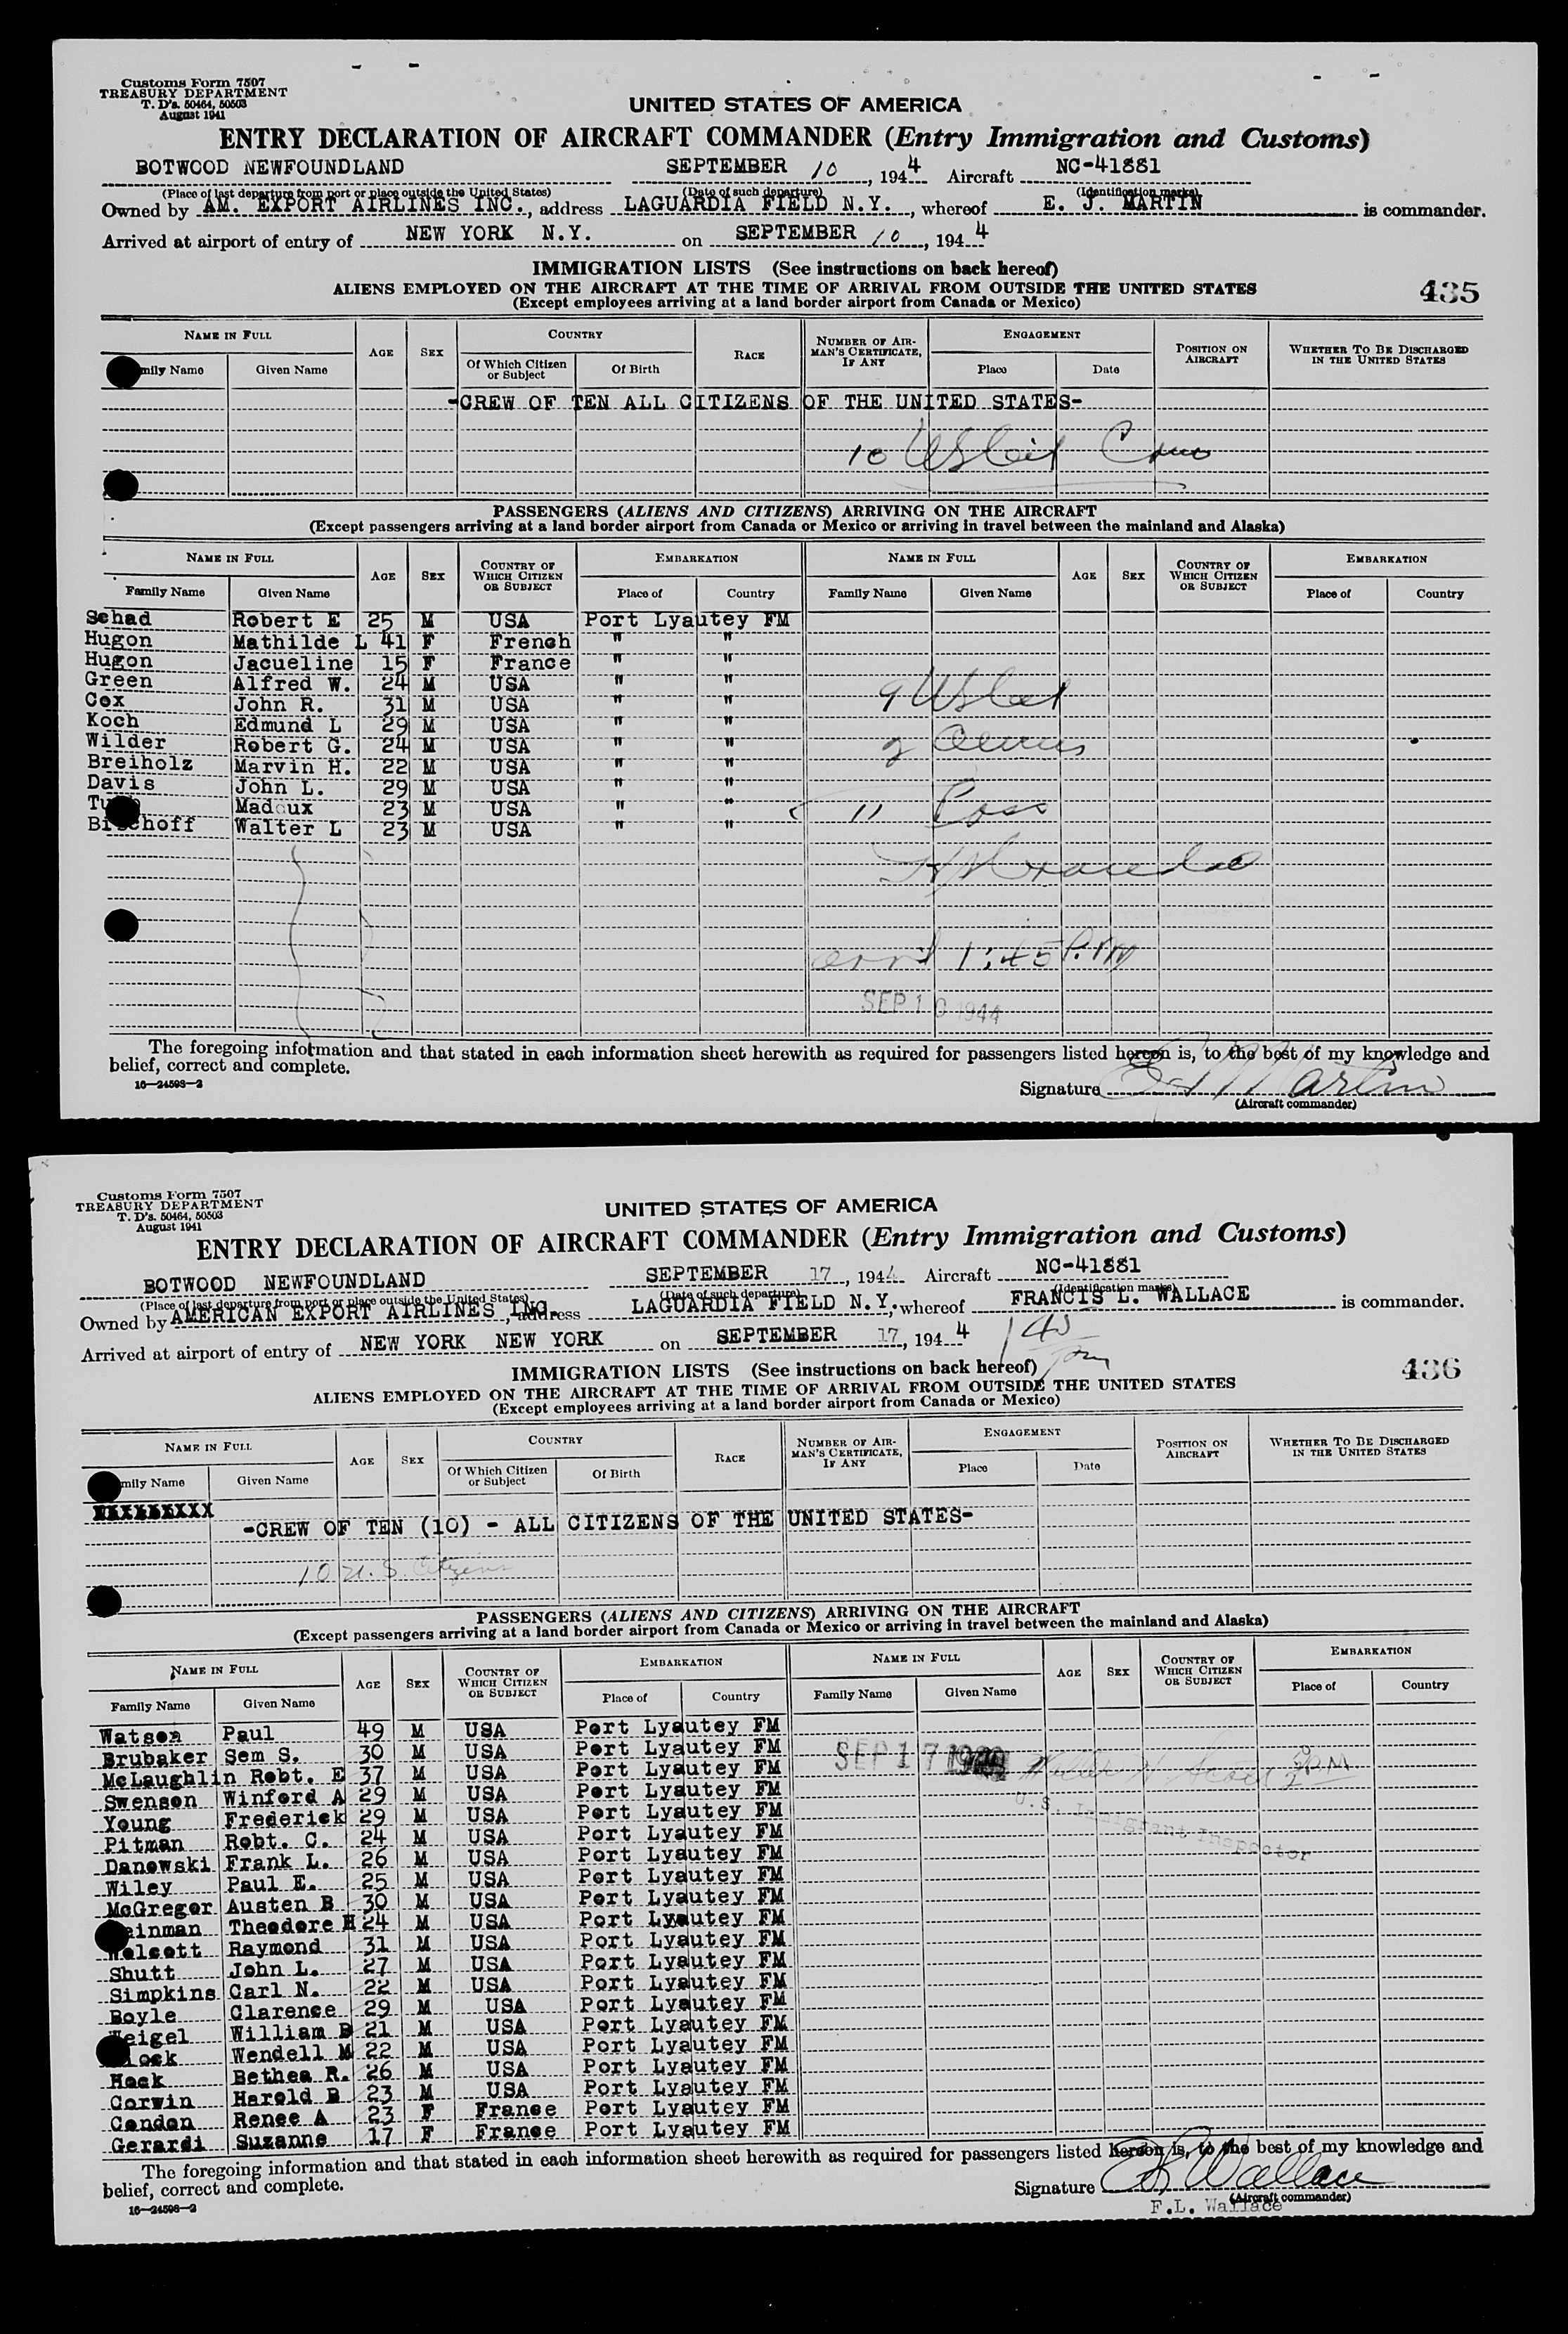 Customs Form 7507
TREASURY DEPARTMENT
T. D's. 50464, 50503
August 1941
UNITED STATES OF AMERICA
ENTRY DECLARATION OF AIRCRAFT COMMANDER (Entry Immigration and Customs)
BOTWOOD NEWFOUNDLAND SEPTEMBER 10, 1944 Aircraft NC-41881
(Place of last departure from port or place outside the United States) (Date of such departure) (Identification marks)
Owned by AM. EXPORT AIRLINES INC., address LAGUARDIA FIELD N.Y., whereof E. J. MARTIN is commander.
Arrived at airport of entry of NEW YORK N.Y. on SEPTEMBER 10, 1944
IMMIGRATION LISTS (See instructions on back hereof)
ALIENS EMPLOYED ON THE AIRCRAFT AT THE TIME OF ARRIVAL FROM OUTSIDE THE UNITED STATES
(Except employees arriving at a land border airport from Canada or Mexico)
435
NAME IN FULL AGE SEX COUNTRY RACE NUMBER OF AIRMAN'S CERTIFICATE, IF ANY ENGAGEMENT POSITION ON AIRCRAFT WHETHER TO BE DISCHARGED IN THE UNITED STATES
mily Name Given Name Of Which Citizen or Subject Of Birth Place Date
-CREW OF TEN ALL CITIZENS OF THE UNITED STATES-
10 US Cit Crew
PASSENGERS (ALIENS AND CITIZENS) ARRIVING ON THE AIRCRAFT
(Except passengers arriving at a land border airport from Canada or Mexico or arriving in travel between the mainland and Alaska)
NAME IN FULL AGE SEX COUNTRY OF WHICH CITIZEN OR SUBJECT EMBARKATION NAME IN FULL AGE SEX COUNTRY OF WHICH CITIZEN OR SUBJECT EMBARKATION
Family Name Given Name Place of Country Family Name Given Name Place of Country
Schad Robert E 25 M USA Port Lyautey FM
Hugon Mathilde L 41 F French " "
Hugon Jacueline 15 F France " "
Green Alfred W. 24 M USA " "
Cox John R. 31 M USA " " 9 US Cit
Koch Edmund L 29 M USA " "
Wilder Robert G. 24 M USA " " 2 Aliens
Breiholz Marvin H. 22 M USA " "
Davis John L. 29 M USA " "
Madoux 23 M USA " " 11 Pass
Bischoff Walter L 23 M USA " "
arrd 1:45 P.M
SEP 10 1944
The foregoing information and that stated in each information sheet herewith as required for passengers listed hereon is, to the best of my knowledge and
belief, correct and complete.
16—24598—2
Signature E J Martin
(Aircraft commander)
Customs Form 7507
TREASURY DEPARTMENT
T. D's. 50464, 50503
August 1941
UNITED STATES OF AMERICA
ENTRY DECLARATION OF AIRCRAFT COMMANDER (Entry Immigration and Customs)
BOTWOOD NEWFOUNDLAND SEPTEMBER 17, 1944 Aircraft NC-41881
(Place of last departure from port or place outside the United States) (Date of such departure) (Identification marks)
Owned by AMERICAN EXPORT AIRLINES INC., address LAGUARDIA FIELD N.Y., whereof FRANCIS L. WALLACE is commander.
Arrived at airport of entry of NEW YORK NEW YORK on SEPTEMBER 17, 1944 1 45 pm
IMMIGRATION LISTS (See instructions on back hereof)
ALIENS EMPLOYED ON THE AIRCRAFT AT THE TIME OF ARRIVAL FROM OUTSIDE THE UNITED STATES
(Except employees arriving at a land border airport from Canada or Mexico)
436
NAME IN FULL AGE SEX COUNTRY RACE NUMBER OF AIRMAN'S CERTIFICATE, IF ANY ENGAGEMENT POSITION ON AIRCRAFT WHETHER TO BE DISCHARGED IN THE UNITED STATES
mily Name Given Name Of Which Citizen or Subject Of Birth Place Date
-CREW OF TEN (10) - ALL CITIZENS OF THE UNITED STATES-
10 U.S. Citizens
PASSENGERS (ALIENS AND CITIZENS) ARRIVING ON THE AIRCRAFT
(Except passengers arriving at a land border airport from Canada or Mexico or arriving in travel between the mainland and Alaska)
NAME IN FULL AGE SEX COUNTRY OF WHICH CITIZEN OR SUBJECT EMBARKATION NAME IN FULL AGE SEX COUNTRY OF WHICH CITIZEN OR SUBJECT EMBARKATION
Family Name Given Name Place of Country Family Name Given Name Place of Country
Watson Paul 49 M USA Port Lyautey FM
Brubaker Sem S. 30 M USA Port Lyautey FM SEP 17
McLaughlin Robt. E 37 M USA Port Lyautey FM
Swenson Winford A 29 M USA Port Lyautey FM U.S. Immigrant Inspector
Young Frederick 29 M USA Port Lyautey FM
Pitman Robt. C. 24 M USA Port Lyautey FM
Danowski Frank L. 26 M USA Port Lyautey FM
Wiley Paul E. 25 M USA Port Lyautey FM
McGregor Austen B 30 M USA Port Lyautey FM
einman Theodore H 24 M USA Port Lyautey FM
Wolcott Raymond 31 M USA Port Lyautey FM
Shutt John L. 27 M USA Port Lyautey FM
Simpkins Carl N. 22 M USA Port Lyautey FM
Boyle Clarence 29 M USA Port Lyautey FM
Weigel William B 21 M USA Port Lyautey FM
lock Wendell M 22 M USA Port Lyautey FM
Hack Bethea R. 26 M USA Port Lyautey FM
Corwin Harold B 23 M USA Port Lyautey FM
Condon Renee A 23 F France Port Lyautey FM
Gerardi Suzanne 17 F France Port Lyautey FM
The foregoing information and that stated in each information sheet herewith as required for passengers listed hereon is, to the best of my knowledge and
belief, correct and complete.
16—24598—2
Signature F L Wallace
(Aircraft commander)
F.L. Wallace